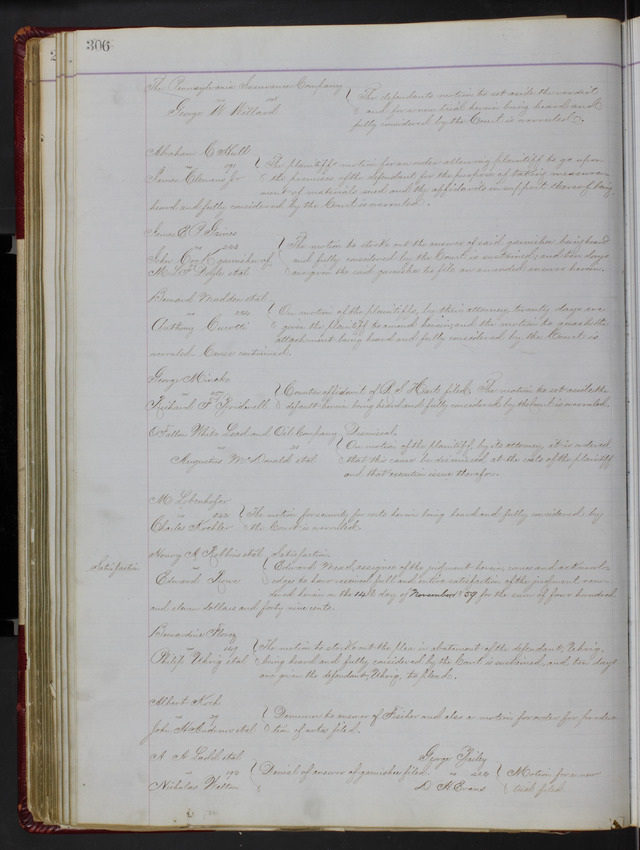 306
The Pennsylvania Insurance Company
vs
George W Willard
The defendants motion to set aside the verdict
and for a new trial herein being heard and
fully considered by the Court is overruled.
Abraham C Hull
vs 191
James Clemens Jr
The plaintiffs motion for an order allowing plaintiff to go upon
the premises of the defendant for the purpose of taking measure
ment of materials used and the affidavits in support thereof being
heard and fully considered by the Court is overruled.
vs
John Cook garnishee of
et al
The motion to strike out the answer of said garnishee being heard
and fully considered by the Court is sustained, and ten days
are given the said garnishee to file an amended answer herein.
Bernard Madden et al
vs
Anthony
On motion of the plaintiffs, by their attorney, twenty days are
given the plaintiff to amend herein, and the motion to quash the
attachment being heard and fully considered by the Court is
overruled. Cause continued.
George
vs
Richard F Bridwell
Counter affidavit of filed. The motion to set aside the
default herein being heard and fully considered by the Court is overruled.
O'Fallon White Lead and Oil Company
vs
Augustus McDonald et al
Dismissal.
On motion of the plaintiff, by its attorney, it is ordered
that this cause be dismissed at the costs of the plaintiff
and that execution issue therefor.
M Lobenhofer
vs
Charles Koehler
The motion for security for costs herein being heard and fully considered by
the Court is overruled.
Satisfaction
Henry A Robbins et al
vs
Edward
Satisfaction
Edward Mead, assignee of the judgment herein, comes and acknowl
edges to have received full and entire satisfaction of the judgment ren
dered herein on the 14th day of November 1859 for the sum of four hundred
and eleven dollars and forty nine cents.
Bernardine Florez
vs 149
Philip Uhrig et al
The motion to strike out the plea in abatement of the defendant, Uhrig,
being heard and fully considered by the Court is sustained, and ten days
are given the defendant, Uhrig, to plead.
Albert Koch
vs
John H Andrews et al
Demurrer to answer of Fischer and also a motion for order for produc
tion of notes filed.
A A Ladd et al
vs 190
Nicholas Walton
Denial of answer of garnishee filed.
George Bailey
vs
D H Evans
Motion for a new
trial filed.